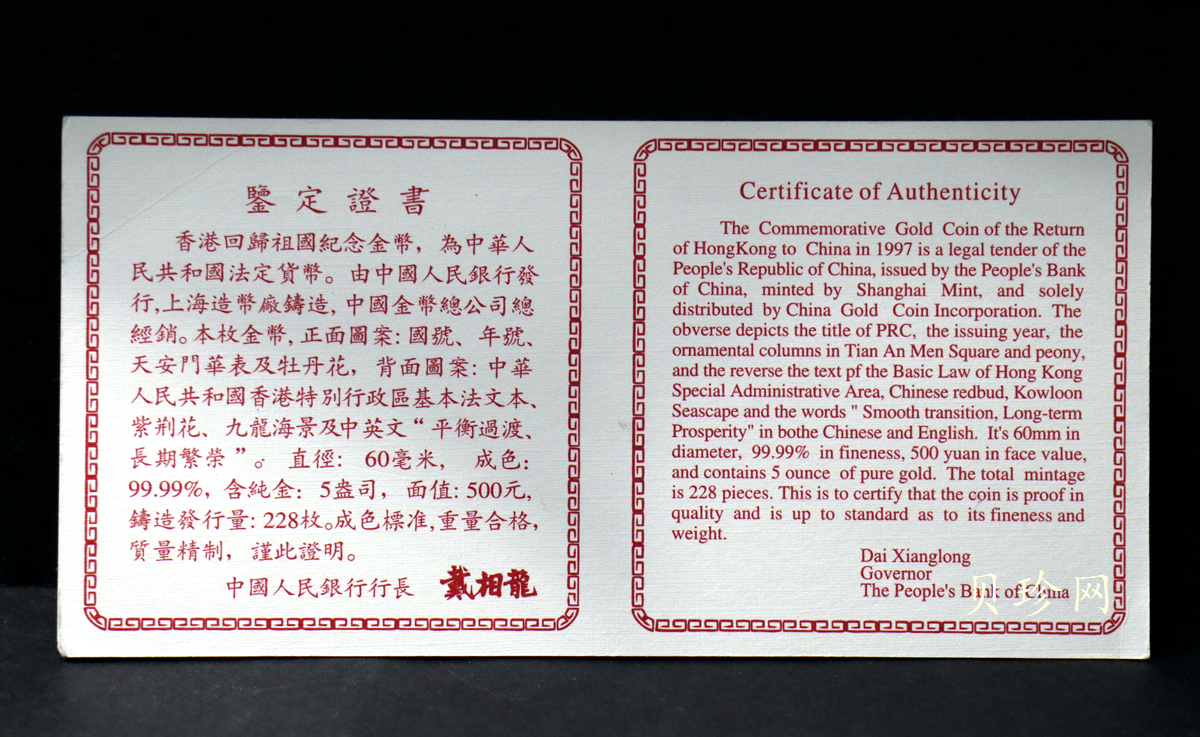 鑒定證書
香港回歸祖國紀念金幣，為中華人
民共和國法定貨幣。由中國人民銀行發
行,上海造幣廠鑄造,中國金幣總公司總
經銷。本枚金幣,正面圖案:國號、年號、
天安門華表及牡丹花，背面圖案:中華
人民共和國香港特別行政區基本法文本、
紫荆花、九龍海景及中英文“平衡過渡、
長期繁榮”。直徑: 60毫米, 成色:
99.99%, 含純金: 5盎司, 面值:500元,
鑄造發行量:228枚。成色標准,重量合格,
質量精制，謹此證明。
中國人民銀行行長 戴相龍
Certificate of Authenticity
The Commemorative Gold Coin of the Return
of HongKong to China in 1997 is a legal tender of the
People's Republic of China, issued by the People's Bank
of China, minted by Shanghai Mint, and solely
distributed by China Gold Coin Incorporation. The
obverse depicts the title of PRC, the issuing year, the
ornamental columns in Tian An Men Square and peony,
and the reverse the text pf the Basic Law of Hong Kong
Special Administrative Area, Chinese redbud, Kowloon
Seascape and the words " Smooth transition, Long-term
Prosperity" in bothe Chinese and English. It's 60mm in
diameter, 99.99% in fineness, 500 yuan in face value,
and contains 5 ounce of pure gold. The total mintage
is 228 pieces. This is to certify that the coin is proof in
quality and is up to standard as to its fineness and
weight.
Dai Xianglong
Governor
The People's Bank of China
贝珍网